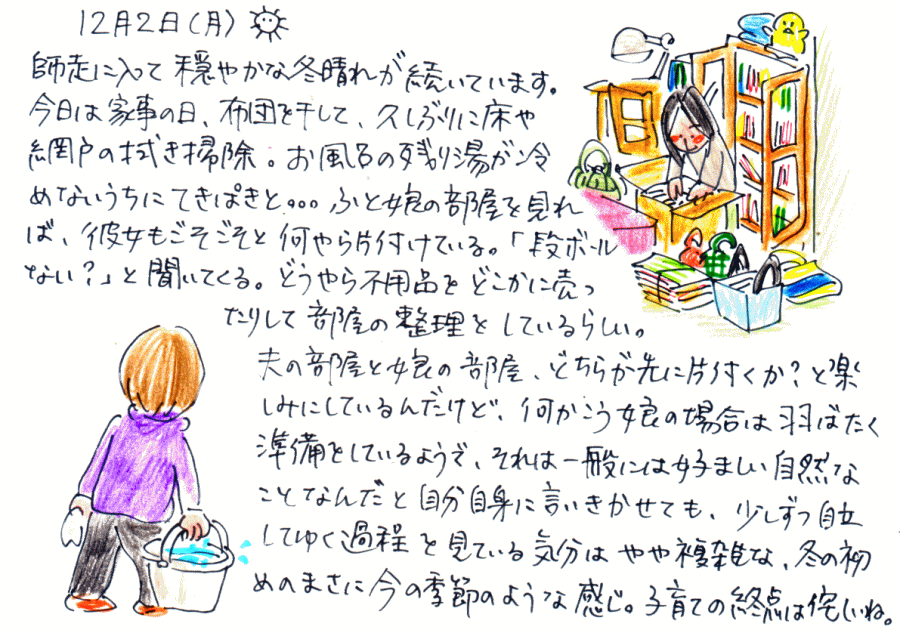 12月2日(月)
師走に入って穏やかな冬晴れが続いています。
今日は家事の日、布団を干して、久しぶりに床や
網戸の拭き掃除。お風呂の残り湯が冷
めないうちにてきぱきと...ふと娘の部屋を見れ
ば、彼女もごそごそと何やら片付けている。「段ボール
ない?」と聞いてくる。どうやら不用品をどこかに売っ
たりして部屋の整理をしているらしい。
夫の部屋と娘の部屋、どちらが先に片付くか?と楽
しみにしているんだけど、何かこう娘の場合は羽ばたく
準備をしているようで、それは一般には好ましい自然な
ことなんだと自分自身に言いきかせても、少しずつ自立
してゆく過程を見ている気分はやや複雑な、冬の初
めのまさに今の季節のような感じ。子育ての終点は侘しいね。